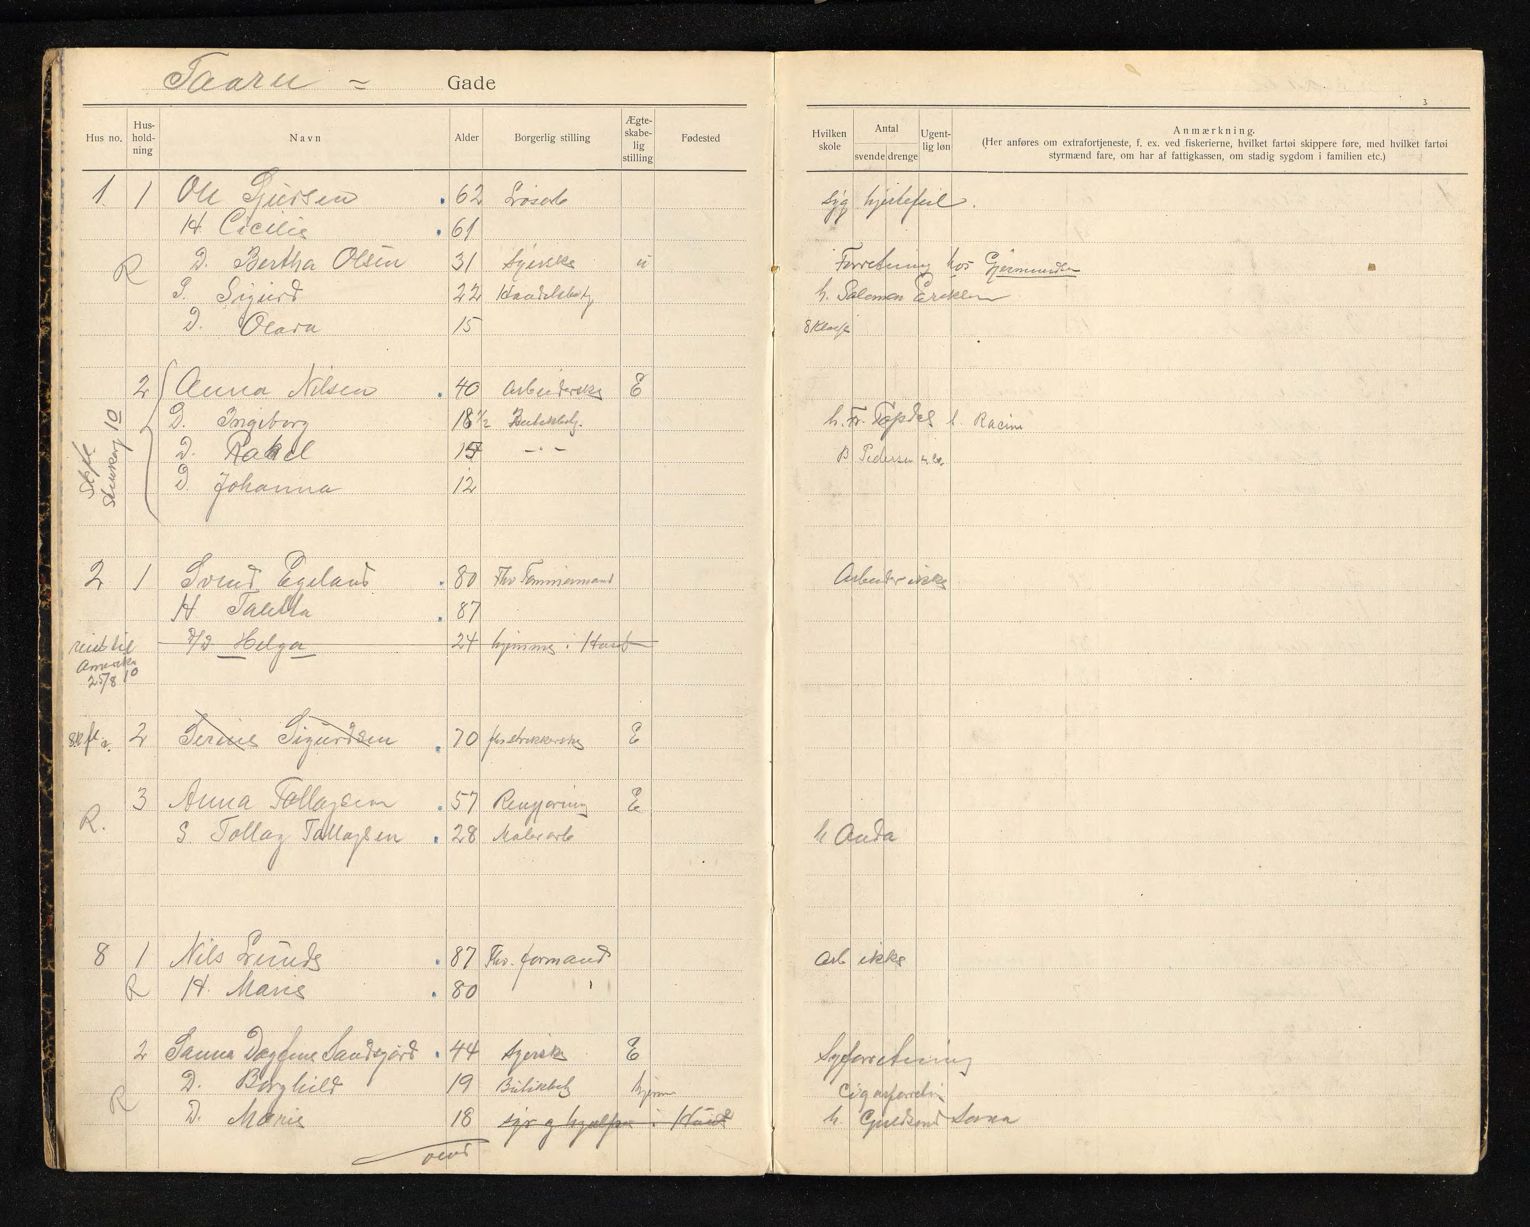 Taarn = Gade
3
Hus no. Hus-hold-ning Navn Alder Borgerlig stilling Ægte-skabe-lig stilling Fødested Hvilken skole Antal svende drenge Ugent-lig løn Anmærkning.
(Her anføres om extrafortjeneste, f. ex. ved fiskerierne, hvilket fartøi skippere føre, med hvilket fartøi
styrmænd fare, om har af fattigkassen, om stadig sygdom i familien etc.)
1. 1 Ole Sjursen 62 Løsarb syg hjertefeil.
H Cicilie 61
R D. Bertha Olsen 31 Syerske u Forretning hos Gjermundsen
S. Sigurd 22 Handelsbetj h. Salomon Ericksen
D. Olava 15 8 Klasse
2 Anna Nilsen 40 Arbeiderske E
D. Ingeborg 18 1/2 Butikbetj. h. Fr. Tøpdel
D. Rakel 15 - " - B Pedersen & Co.
D. Johanna 12
Skfl 10
2 1 Svend Egeland 80 Fhv Tømmermand Arbeider ikke
H Talitha 87
reist til Amerika 25/8 10 D/D Helga 24 hjemme i Huset
Skfl. 2 Serine Sigurdsen 70 fhv strikkerske E
3 Anna Tollagsen 57 Rengjøring E
R. S. Tollag Tollagsen 28 Malerarb h Anda
8 1 Nils Lunde 87 Fhv. formand Arb ikke
R H. Marie 80
2 Sanna Dagfine Sandsgård 44 Syerske E Syforretning
R D. Borghild 19 Butikbetj hjem Cigarforretn
D. Marie 18 syr og hjælper i Huset h.
vend